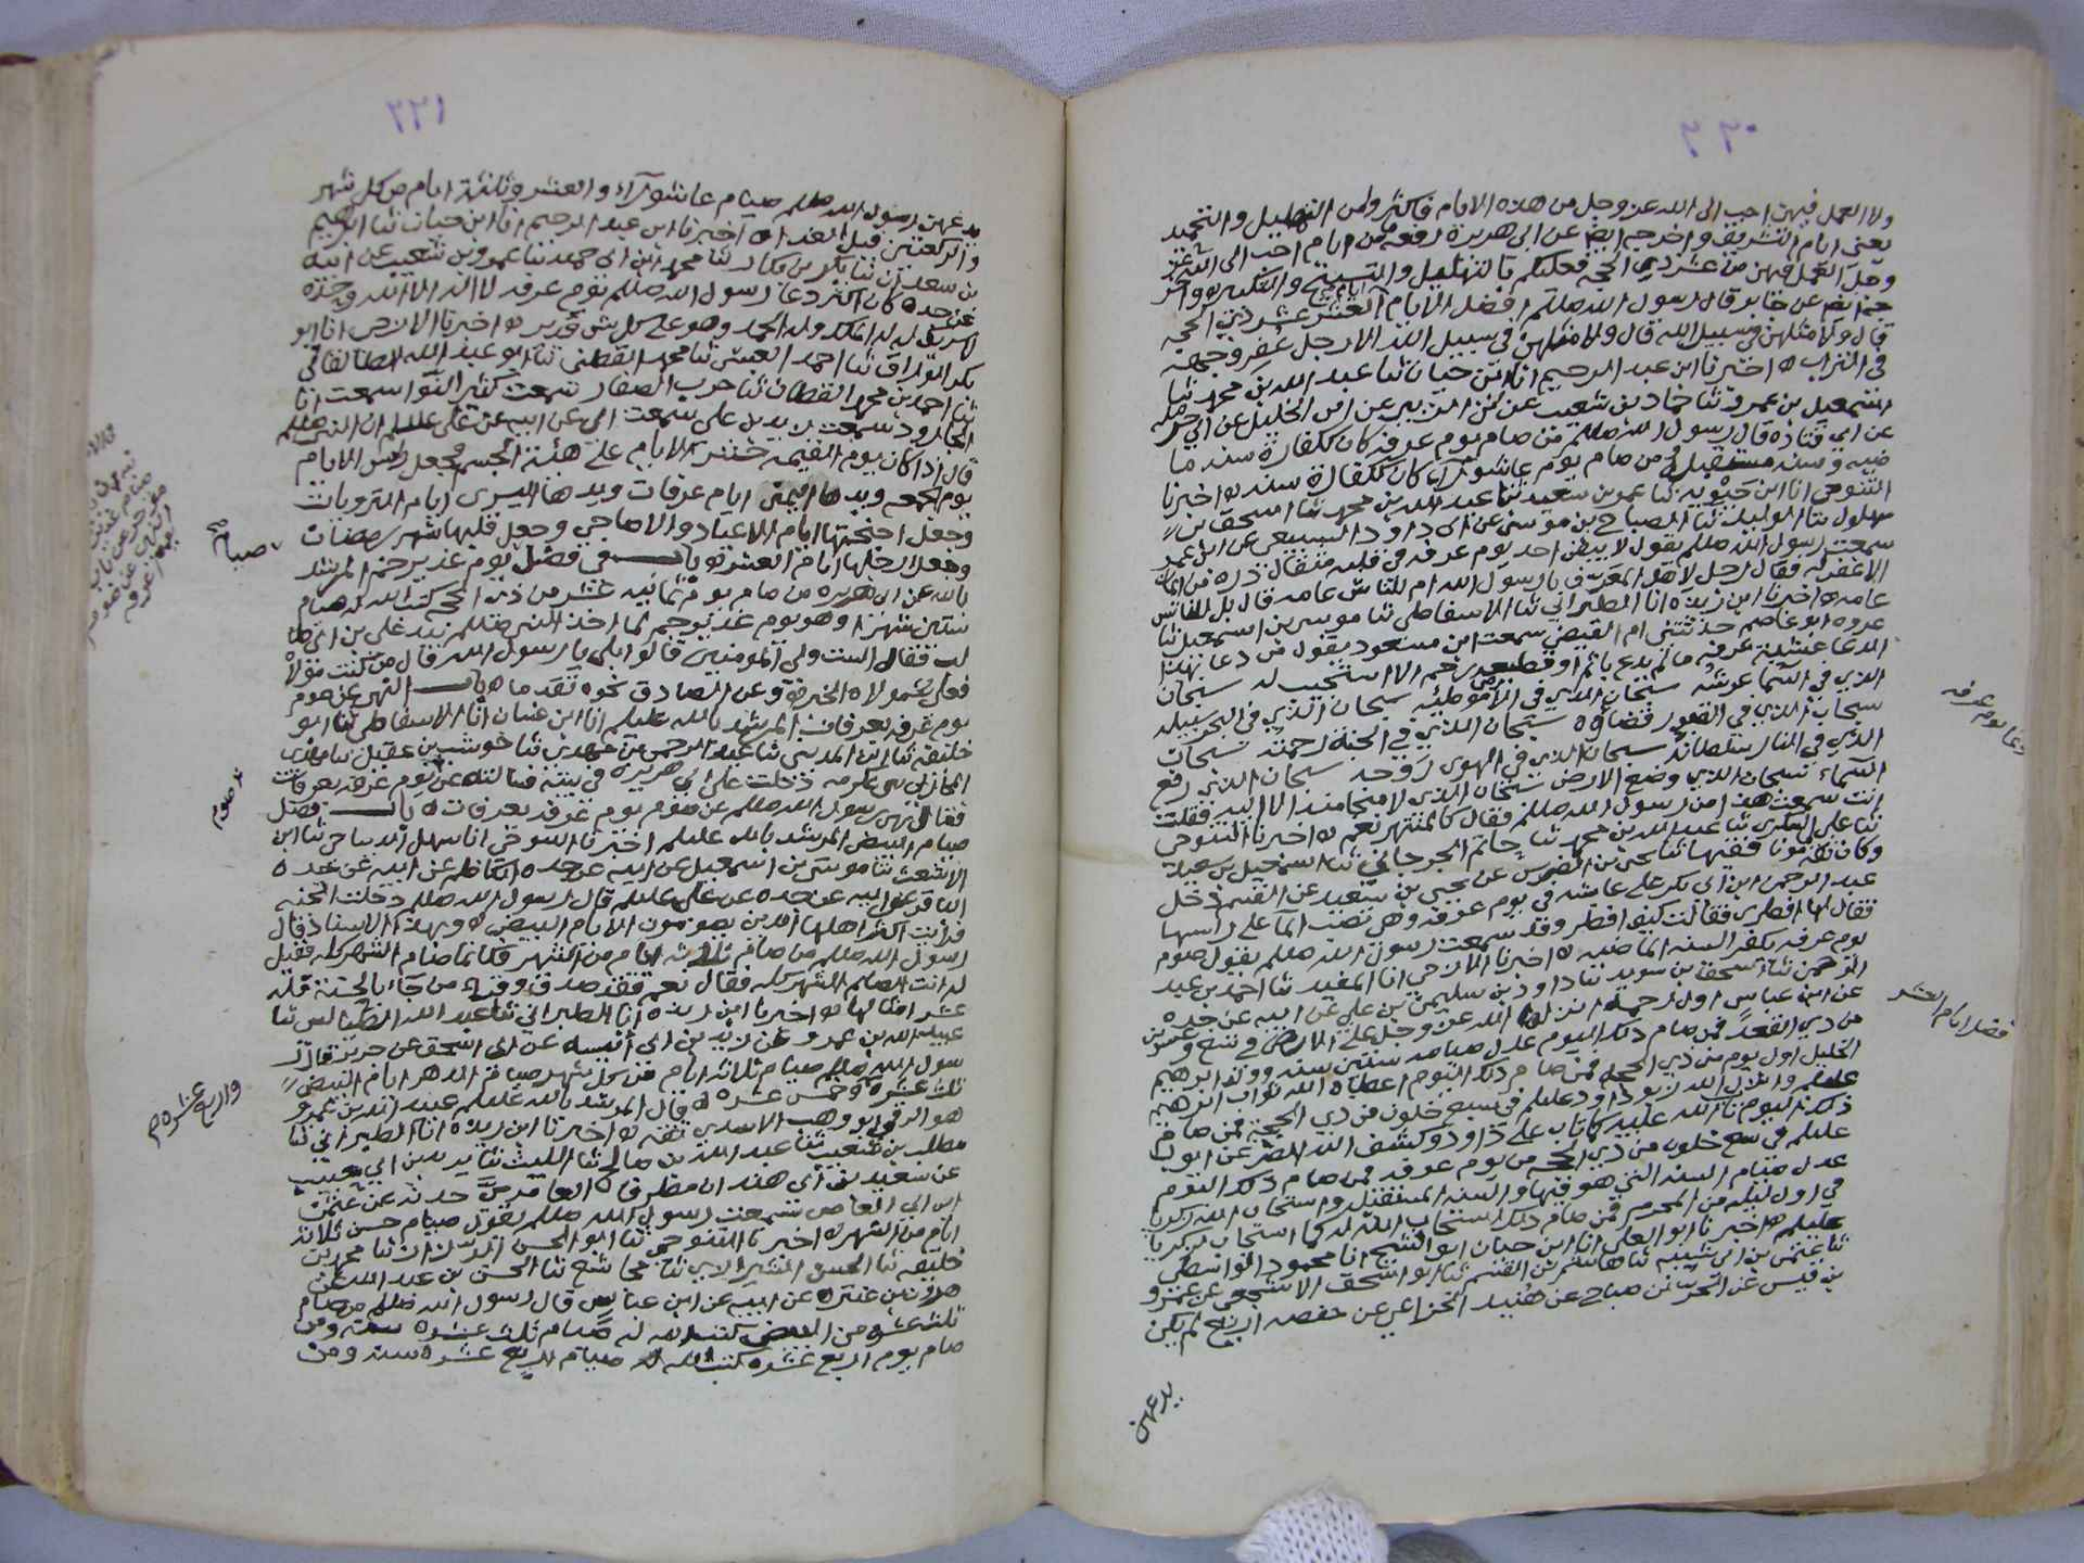 ٢٢٠
ولا العمل فيهن احب الى الله عز وجل من هذه الايام فاكثروا من التهليل والتحميد
يعنى ايام التشريق واخرجه ايضا عن ابي هريرة رفعه ما من ايام احب الى الله عز
وجل العمل فيهن من عشر ذي الحجه فعليكم بالتهليل والتسبيح والتكبير
عن جابر قال رسول الله صللم افضل الايام ايام العشر عشر ذي الحجه
قال ولا مثلهن في سبيل الله قال ولا مثلهن في سبيل الله الا رجل عفر وجهه
في التراب ه اخبرنا ابن عبد الرحيم انا ابن حيان ثنا عبد الله بن محمد ثنا
اسمعيل بن عمرو ثنا حماد بن شعيب عن ابى الزبير عن ابى الخليل عن ابي حرمله
عن ابي قتاده قال رسول الله صللم من صام يوم عرفه كان كفارة سنه ما
ضيه وسنه مستقبله ومن صام يوم عاشورآء كان كفارة سنه ه اخبرنا
التنوخي انا ابن حيويه ثنا عمر بن سعيد ثنا عبد الله بن محمد ثنا اسحق بن
بهلول ثنا الوليد ثنا الصباح بن موسى عن ابي داود السبيعي عن ابن عمر
سمعت رسول الله صللم يقول لا يبقى احد يوم عرفه في قلبه مثقال ذره من ايمان
الا غفر له فقال رجل لاهل المعرف يا رسول الله ام للناس عامه قال بل للناس
عامه ه اخبرنا ابن زيده انا الطبراني ثنا الاسفاطى ثنا موسى بن اسمعيل ثنا
عزره ابو عاصم حدثتني ام الفيض سمعت ابن مسعود يقول من دعا بهذا
الدعا عشية عرفه ما لم يدع باثم او قطيعه رحم الا استجيب له سبحان
الذي في السما عرشه سبحان الذي في الارض موطئه سبحان الذي في البحر سبيله
سبحان الذي في القبور قضاؤه سبحان الذي في الجنه رحمته سبحان
الذي في النار سلطانه سبحان الذي في الهوى روحه سبحان الذي رفع
السماء سبحان الذي وضع الارض سبحان الذي لا منجا منه الا اليه فقلت
انت سمعت هذا من رسول الله صللم فقال كالمنتهر نعم ه اخبرنا التنوخي
ثنا علي السكرى ثنا عبد الله بن محمد ثنا حاتم الجرجاني ثنا اسمعيل بن سعيد
وكان ثقه مامونا فقيها ثنا يحيى بن الضريس عن يحيى بن سعيد عن القسم دخل
عبد الرحمن ابن ابي بكر على عايشه في يوم عرفه وهى تصب المآ على راسها
فقال لها افطري فقالت كيف افطر وقد سمعت رسول الله صللم يقول صوم
يوم عرفه يكفر السنه الماضيه ه اخبرنا الازجي انا المفيد ثنا احمد بن عبد
الرحمن ثنا اسحق بن سويد ثنا داود بن سليمن بن علي عن ابيه عن جده
عن ابن عباس اول رحمة انزلها الله عز وجل على الارض في تسع وعشرين
من ذي القعده فمن صام ذلك اليوم عدل صيامه ستين سنه وولد ابرهيم
الخليل اول يوم من ذي الحجه فمن صام ذلك اليوم اعطاه الله ثواب ابرهيم
عليلم وانزل الله توبه داود عليلم في سبع خلون من ذي الحجه فمن صام
ذلك اليوم تاب الله عليه كما تاب على داود وكشف الله الضر عن ايوب
عليلم في تسع خلون من ذي الحجه من يوم عرفه فمن صام ذلك اليوم
عدل صيام السنه التي هو فيها والسنه المستقبله واستجاب الله لزكريا
في اول ليله من المحرم فمن صام ذلك استجاب الله له كما استجاب لزكريا
عليلم ه اخبرنا ابو العلى انا ابن حيان ابو الشيخ انا محمود الواسطي
ثنا عثمن بن ابى شيبه ثنا هاشم بن القسم ثنا ابو اسحق الاشجعي عن عمرو
بن قيس عن الحر بن صباح عن هنيد الخزاعي عن حفصه اربع لم يكن
يدعهن
دعا يوم عرفه
فضل ايام العشر
٢٢١
يدعهن رسول الله صللم صيام عاشورآء والعشر وثلثة ايام من كل شهر
والركعتين قبل الغداه ه اخبرنا ابن عبد الرحيم انا ابن حيان ثنا ابرهيم
بن سعدان ثنا بكر بن بكار ثنا محمد ابن ابي حميد ثنا عمرو بن شعيب عن ابيه
عن جده كان اكثر دعا رسول الله صللم يوم عرفه لا اله الا الله وحده
لا شريك له له الملك وله الحمد وهو على كل شى قدير ه اخبرنا الازجى انا ابو
بكر الوراق ثنا احمد العبسى ثنا محمد القطنى ثنا ابو عبد الله الطالقاني
ثنا احمد بن محمد القطان ثنا حرب الصفار سمعت كثير النوا سمعت ابا
الجارود سمعت زيد بن على سمعت ابي عن ابيه عن على عليلم ان النبي صللم
قال اذا كان يوم القيمه حشر الايام على هيئة الجسم فجعل راس الايام
يوم الجمعه ويدها اليمنى ايام عرفات ويدها اليسرى ايام الترويات
وجعل اجنحتها ايام الاعياد والاضاحي وجعل قلبها شهر رمضان
وجعل ارجلها ايام العشر ه باب في فضل يوم غدير خم المرشد
بالله عن ابى هريره من صام يوم ثمانيه عشر من ذى الحج كتب الله له صيام
ستين شهرا وهو يوم غدير خم لما اخذ النبى صللم بيد على بن ابى طا
لب فقال الست ولي المومنين قالوا بلى يا رسول الله قال من كنت مولاه
فعلى مولاه الخبر ه وعن الصادق نحوه تقدما ه باب النهى عن صوم
يوم عرفه بعرفات المرشد بالله عليلم انا ابن غسان انا الاسفاطي ثنا ابو
خليفه ثنا ابن المديني ثنا عبد الرحمن بن مهدي ثنا حوشب بن عقيل ثنا مهدى
الهجري عن عكرمه دخلت على ابي هريره في بيته فسالته عن يوم عرفه بعرفات
فقال نهى رسول الله صللم عن صوم يوم عرفه بعرفات ه باب فضل
صيام البيض المرشد بالله عليلم اخبرنا التنوخي انا سهل الديباجى ثنا ابن
الاشعث ثنا موسى بن اسمعيل عن ابيه عن جده الكاظم عن ابيه عن جده
الباقر عن ابيه عن جده عن على عليلم قال رسول الله صللم دخلت الجنه
فرايت اكثر اهلها الذين يصومون الايام البيض ه وبهذا الاسناد قال
رسول الله صللم من صام ثلاثه ايام من الشهر فكانما صام الشهر كله فقيل
له انت الصايم الشهر كله فقال نعم فقد صدق وقراء من جآء بالحسنة فله
عشر امثالها ه اخبرنا ابن ريذه انا الطبراني ثنا عبد الله الطيالسى ثنا
عبيد الله بن عمرو عن زيد بن ابي أنيسه عن ابى اسحق عن جرير قال ر
سول الله صللم صيام ثلاثه ايام من كل شهر صيام الدهر ايام البيض
ثلث عشره وخمس عشره ه قال المرشد بالله عليلم عبيد الله بن عمرو
هو الرقي ابو وهب الاسدي ثقه ه اخبرنا ابن ريذه انا الطبراني ثنا
مطلب بن شعيب ثنا عبد الله بن صالح ثنا الليث ثنا يزيد بن ابي حبيب
عن سعيد بن ابى هند ان مطرفا العامرى حدثه عن عثمن
ابن ابى العاص سمعت رسول الله صللم يقول صيام حسن ثلاثة
ايام من الشهر ه اخبرنا التنوخي ثنا ابو الحسن ثنا محمد بن
خليفه ثنا الحسن ثنا ثنا الحسن بن عبد الله عن
هرون بن عنتره عن ابيه عن ابن عباس قال رسول الله صللم من صام
ثلث عشره من البيض كتب الله له صيام ثلث عشره سنه ومن
صام يوم اربع عشره كتب الله له صيام اربع عشره سنه ومن
صيام
صوم
واربع عشره